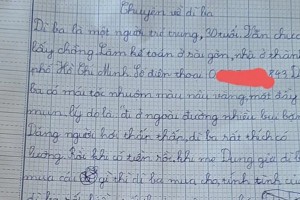 Chuyện về dì ba
Dì ba là một người trẻ trung, 30 tuổi. Vẫn chưa
lấy chồng. Làm kế toán ở sài gòn, nhà ở thành
phố Hồ Chí Minh. Số điện thoại 0 843. D
ba có mái tóc nhuộm màu nâu vàng, một dây
mụn lý do là "đi ở ngoài đường nhiều bụi bặm
Dáng người hơi thấp thấp, dì ba rất thích cá
lương. Đôi khi có tiền rồi, khi mẹ Dung giờ đi l
mua gì thì dì ba mua cho, tính tình của
dì ba